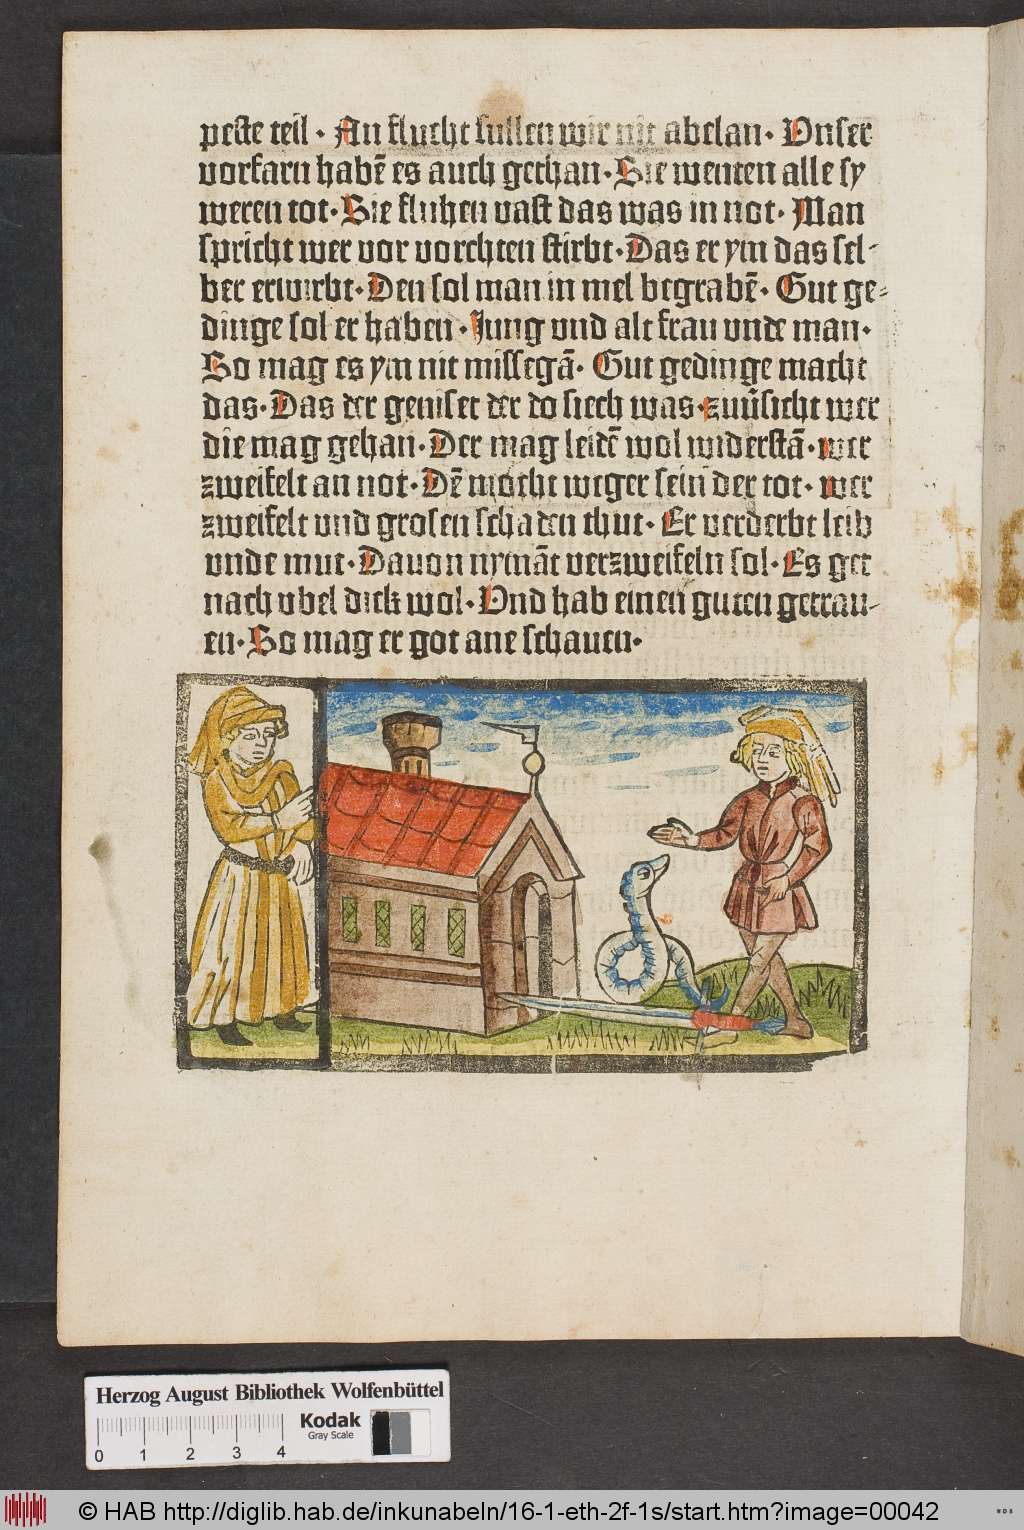 peste teil · An flucht sullen wir nit abelan · Unser
vorfarn habē es auch gethan · Sie wenten alle sy
weren tot · Sie fluhen vast das was in not · Man
spricht wer vor vorchten stirbt · Das er ym das sel-
ber erwirbt · Den sol man in mel begrabē · Gut ge-
dinge sol er haben · Jung und alt frau unde man ·
So mag es ym nit missegā · Gut gedinge macht
das · Das der geniset der do siech was · zuv̄sicht wer
die mag gehan · Der mag leidē wol widerstā · wer
zweifelt an not · Dē mocht weger sein der tot · wer
zweifelt und grosen schaden thut · Er verderbt leib
unde mut · Davon nymāt verzweifeln sol · Es get
nach vbel dick wol · Und hab einen guten getrau-
en · So mag er got ane schauen ·
Herzog August Bibliothek Wolfenbüttel
Kodak
Gray Scale
0 1 2 3 4
© HAB http://diglib.hab.de/inkunabeln/16-1-eth-2f-1s/start.htm?image=00042